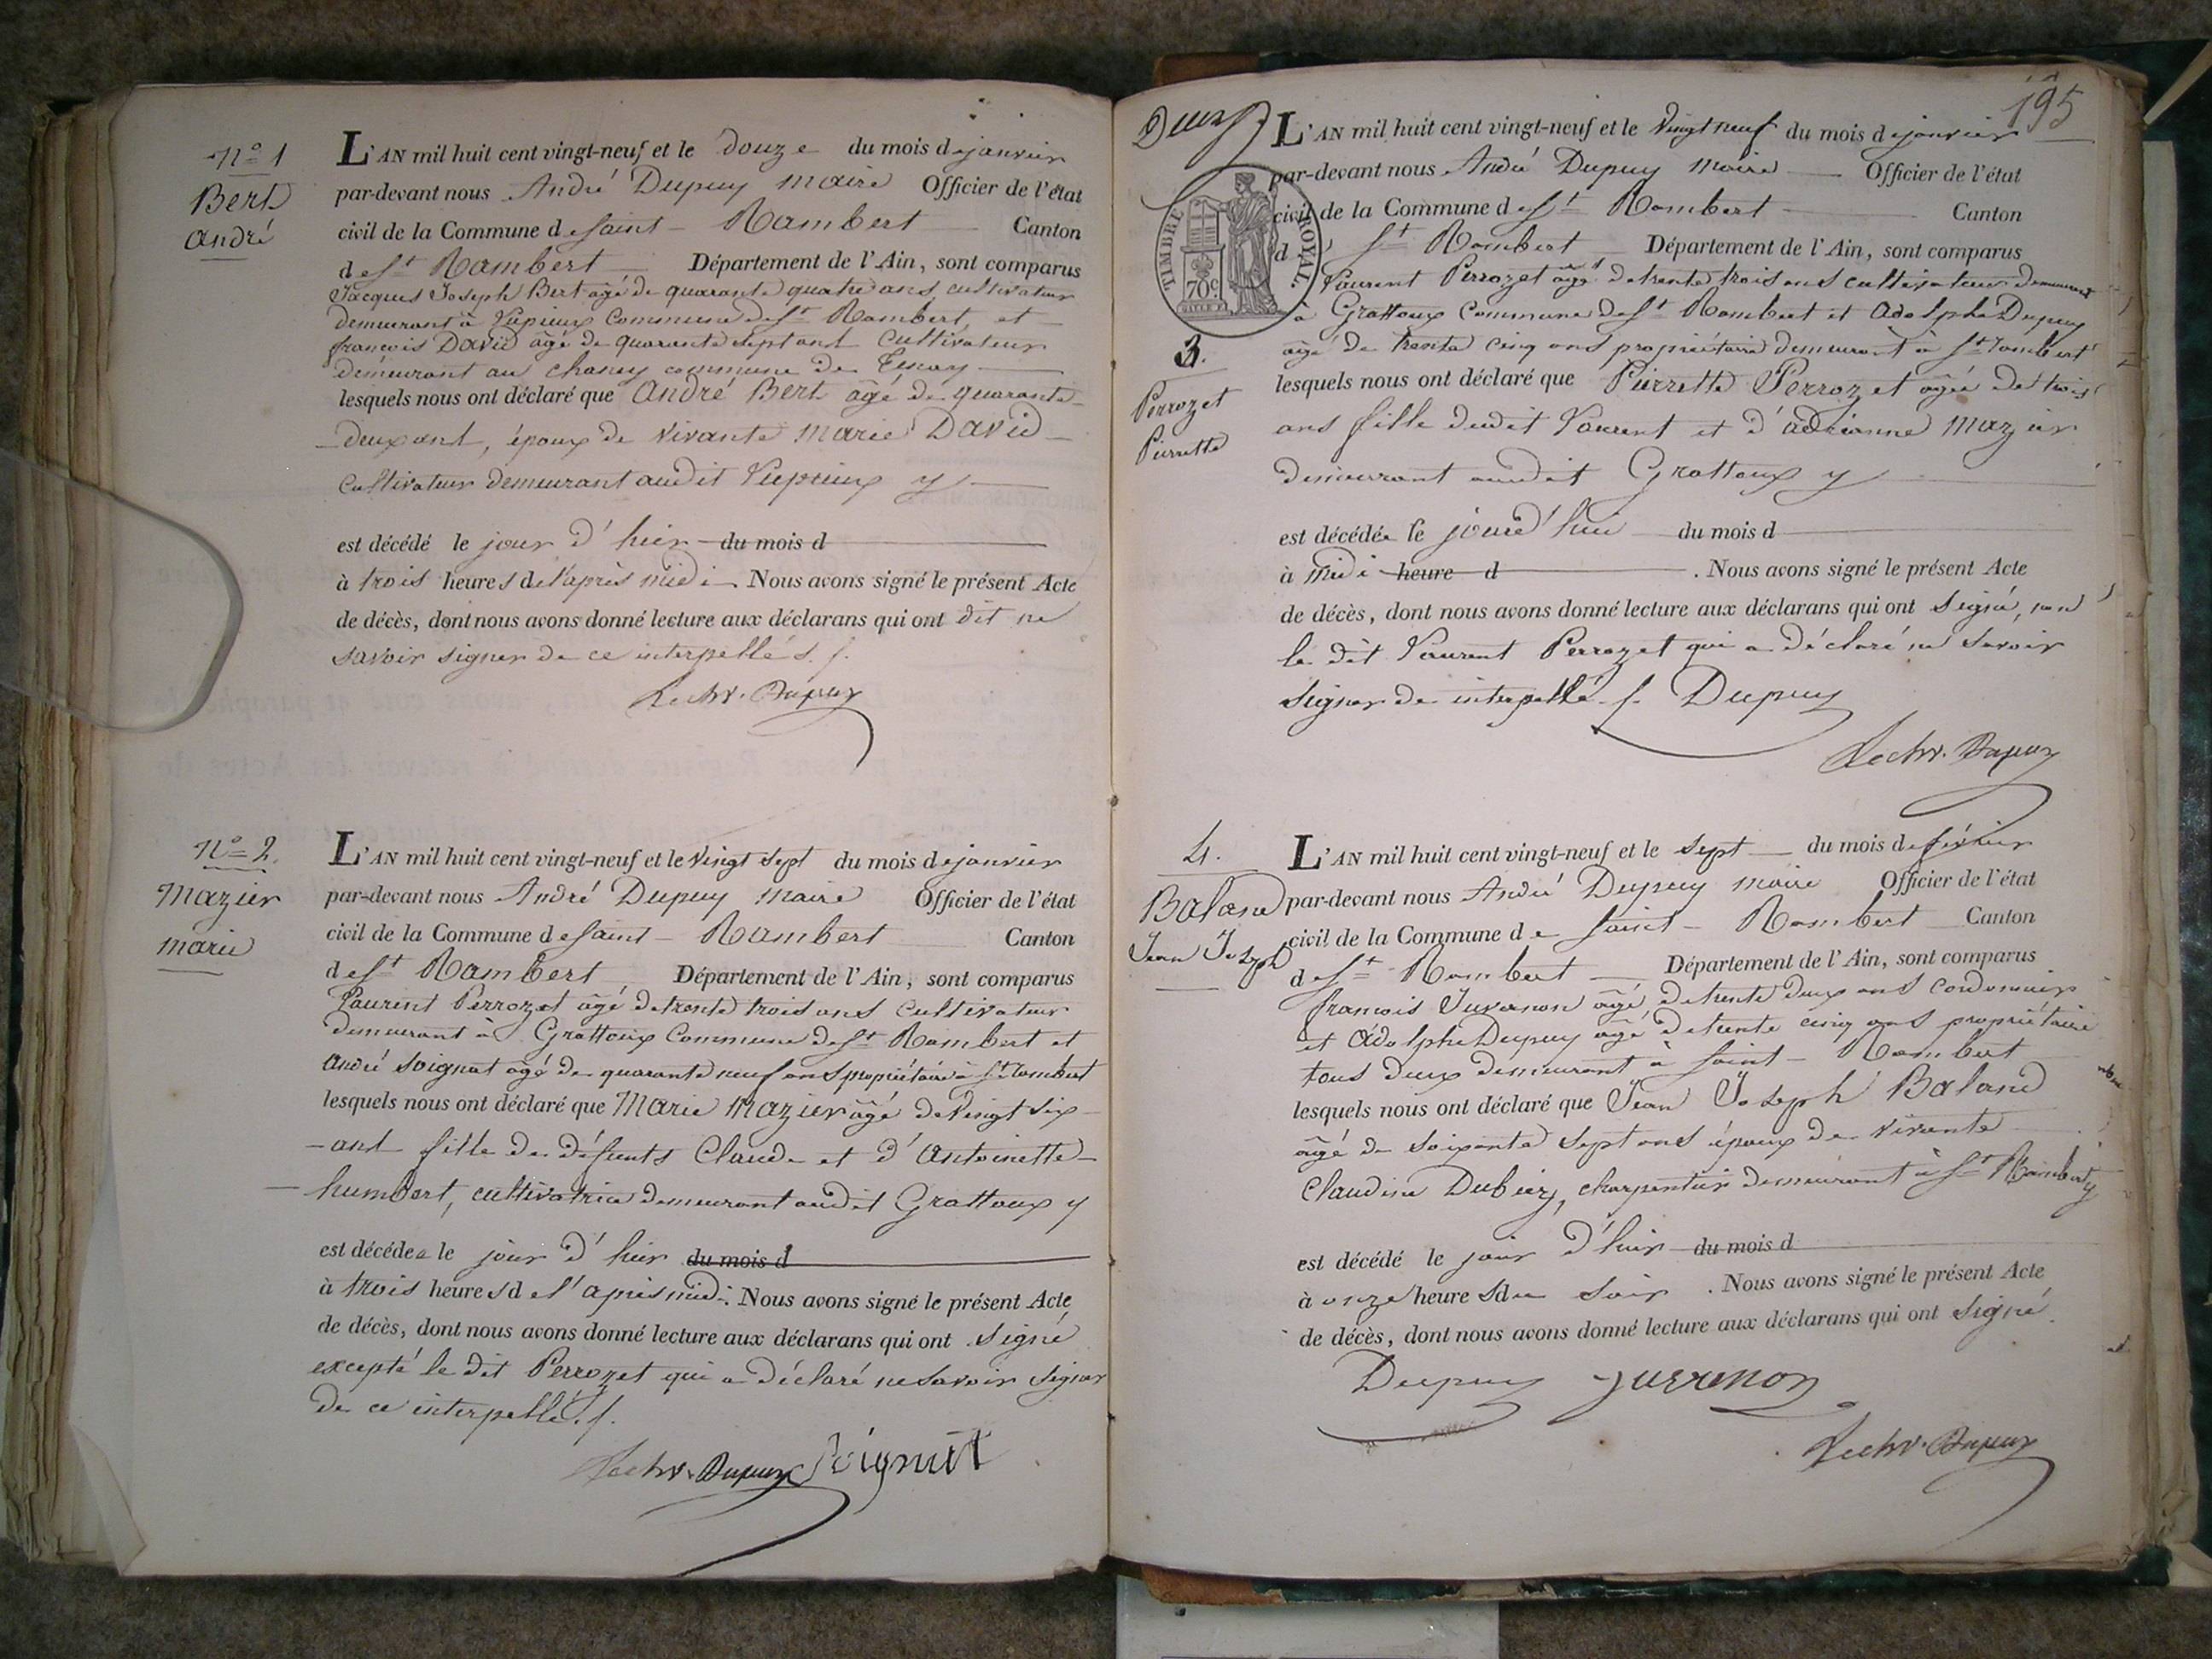 N° 1
Bert
André
L'AN mil huit cent vingt-neuf et le douze du mois de janvier
par-devant nous André Dupuy maire Officier de l'état
civil de la Commune de saint - Rambert Canton
de St Rambert Département de l'Ain, sont comparus
Jacques Joseph Bert âgé de quarante quatre ans, cultivateur
demeurant à Vupieux Commune de St Rambert et
françois David âgé de quarante sept ans Cultivateur
demeurant au chaney commune de Tenay
lesquels nous ont déclaré que André Bert âgé de quarante
deux ans, époux de vivante Marie David
Cultivateur demeurant audit Vupieux y
est décédé le jour d'hier du mois d
à trois heures de l'après midi. Nous avons signé le présent Acte
de décès, dont nous avons donné lecture aux déclarans qui ont dit ne
savoir signer de ce interpellés. f.
Le chv. Dupuy
N° 2.
Mazier
marie
L'AN mil huit cent vingt-neuf et le vingt sept du mois de janvier
par-devant nous André Dupuy maire Officier de l'état
civil de la Commune de saint - Rambert Canton
de St Rambert Département de l'Ain, sont comparus
Laurent Perrozet âgé de trente trois ans cultivateur
demeurant à Grattoux Commune de St Rambert et
André Soignat âgé de quarante neuf ans propriétaire à St Rambert
lesquels nous ont déclaré que Marie Mazier âgé de vingt six
ans fille de défunts Claude et d'Antoinette
humbert, cultivatrice demeurant audit Grattoux y
est décédée le jour d'hier du mois d
à trois heures de l'après midi. Nous avons signé le présent Acte
de décès, dont nous avons donné lecture aux déclarans qui ont signé
excepté le dit Perrozet qui a déclaré ne savoir signer
de ce interpellé. f.
Le chv. Dupuy Soignat
195
Deux
L'AN mil huit cent vingt-neuf et le vingt neuf du mois de janvier
par-devant nous André Dupuy maire Officier de l'état
civil de la Commune de St Rambert Canton
d St Rambert Département de l'Ain, sont comparus
TIMBRE ROYAL
70c
Laurent Perrozet âgé de trente trois ans cultivateur demeurant
à Grattoux Commune de St Rambert et Adolphe Dupuy
âgé de trente cinq ans propriétaire demeurant à St rambert
3.
Perrozet
Pierrette
lesquels nous ont déclaré que Pierrette Perrozet âgée de trois
ans fille dudit Laurent et d'adrianne Mazier
demeurant audit Grattoux y
est décédée le jourd'hui du mois d
à midi heure d . Nous avons signé le présent Acte
de décès, dont nous avons donné lecture aux déclarans qui ont signé, non
le dit Laurent Perrozet qui a déclaré ne savoir
signer de interpellé. f. Dupuy
Le chv. Dupuy
4.
Baland
Jean Joseph
L'AN mil huit cent vingt-neuf et le sept du mois de février
par-devant nous André Dupuy maire Officier de l'état
civil de la Commune de saint - Rambert Canton
de St Rambert Département de l'Ain, sont comparus
françois Juvanon âgé de trente deux ans cordonnier
et Adolphe Dupuy âgé de trente cinq ans propriétaire
tous deux demeurant à saint - Rambert
lesquels nous ont déclaré que Jean Joseph Baland
âgé de soixante sept ans époux de vivante
Claudine Dubiez, charpentier demeurant à St Rambert y
est décédé le jour d'hier du mois d
à onze heures du soir . Nous avons signé le présent Acte
de décès, dont nous avons donné lecture aux déclarans qui ont signé.
Dupuy Juvenon
Le chv. Dupuy